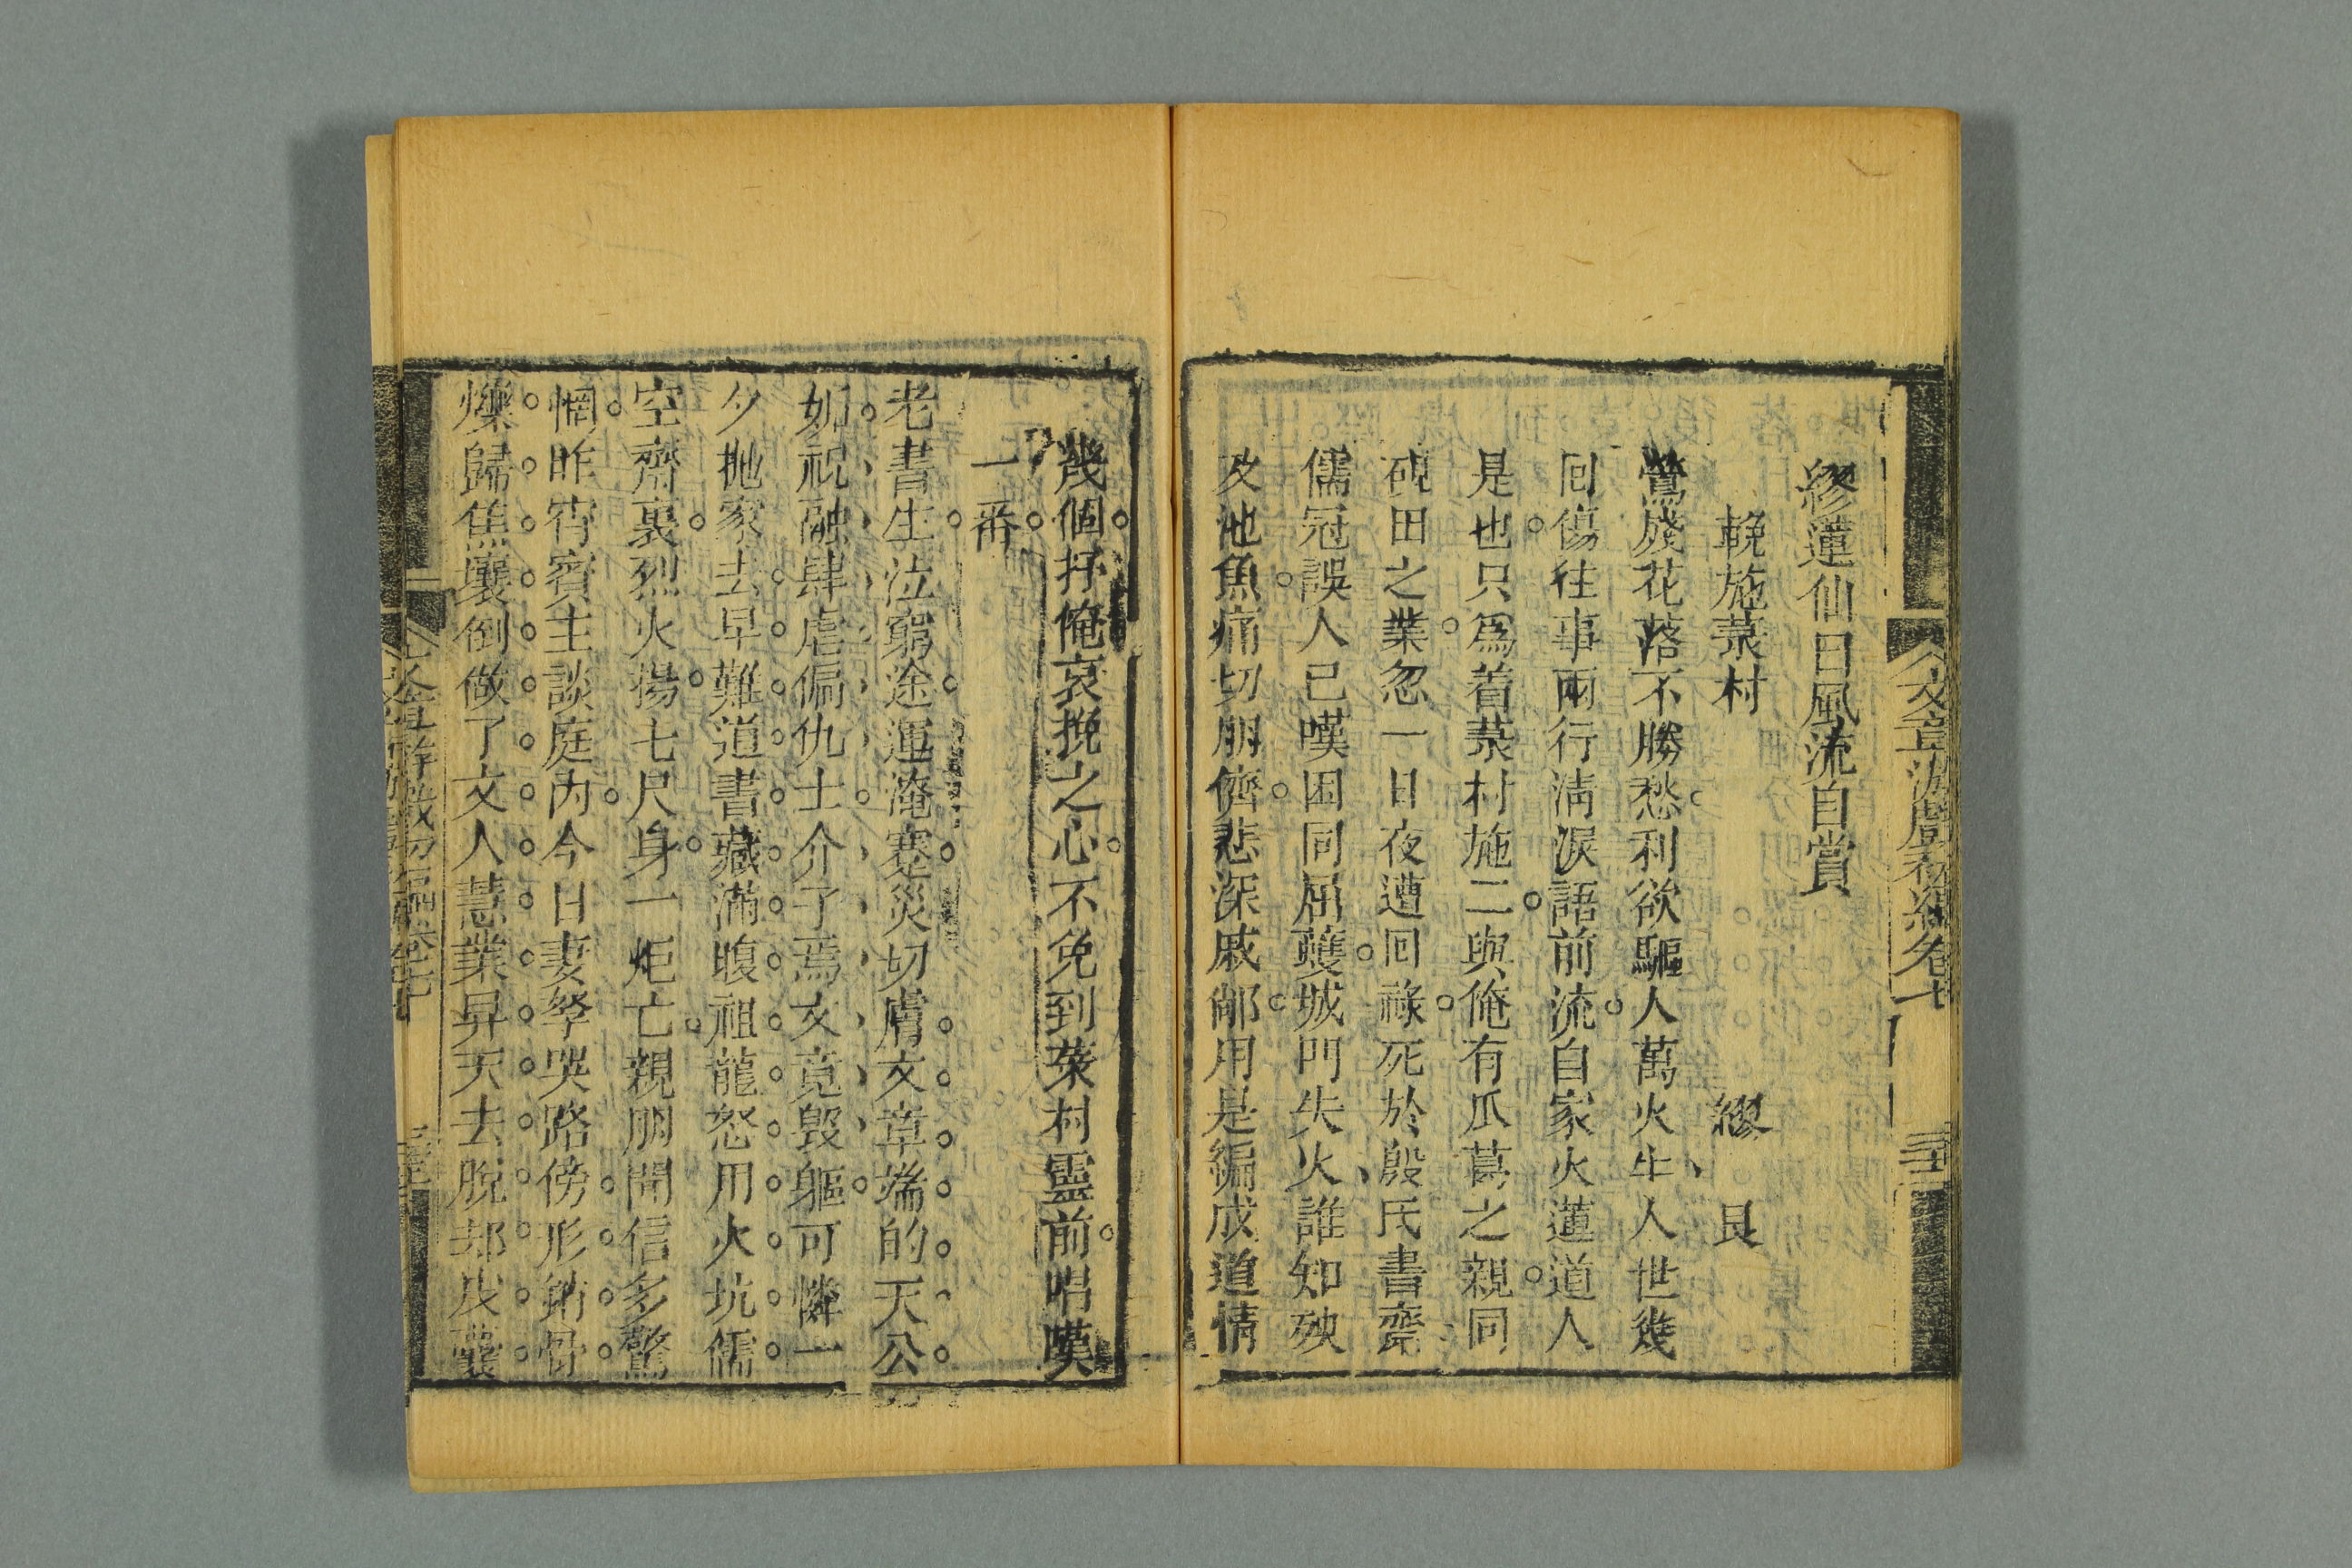 文章游戲初編卷七
繆蓮仙曰風流自賞
輓施菉村 繆艮
鶯殘花落不勝愁利欲驅人萬火牛人世幾
囘傷往事兩行淸淚語前流自家火蓮道人
是也只爲着菉村施二與俺有瓜葛之親同
硯田之業忽一日夜遭囘祿死於殷氏書齋
儒冠誤人已嘆困同屈蠖城門失火誰知殃
及池魚痛切朋儕悲深戚鄰用是編成道情
幾個抒俺哀挽之心不免到菉村靈前唱嘆
一番
老書生泣窮途運淹蹇災切膚文章端的天公
妬祝融肆虐偏仇士介子焉文竟毀軀可憐一
夕抛家去早難道書藏滿腹祖龍怒用火坑儒
空齋裏烈火揚七尺身一炬亡親朋聞信多驚
惘昨宵賓主談庭內今日妻孥哭路傍形銷骨
爍歸焦壤倒做了文人慧業昇天去脫却皮囊